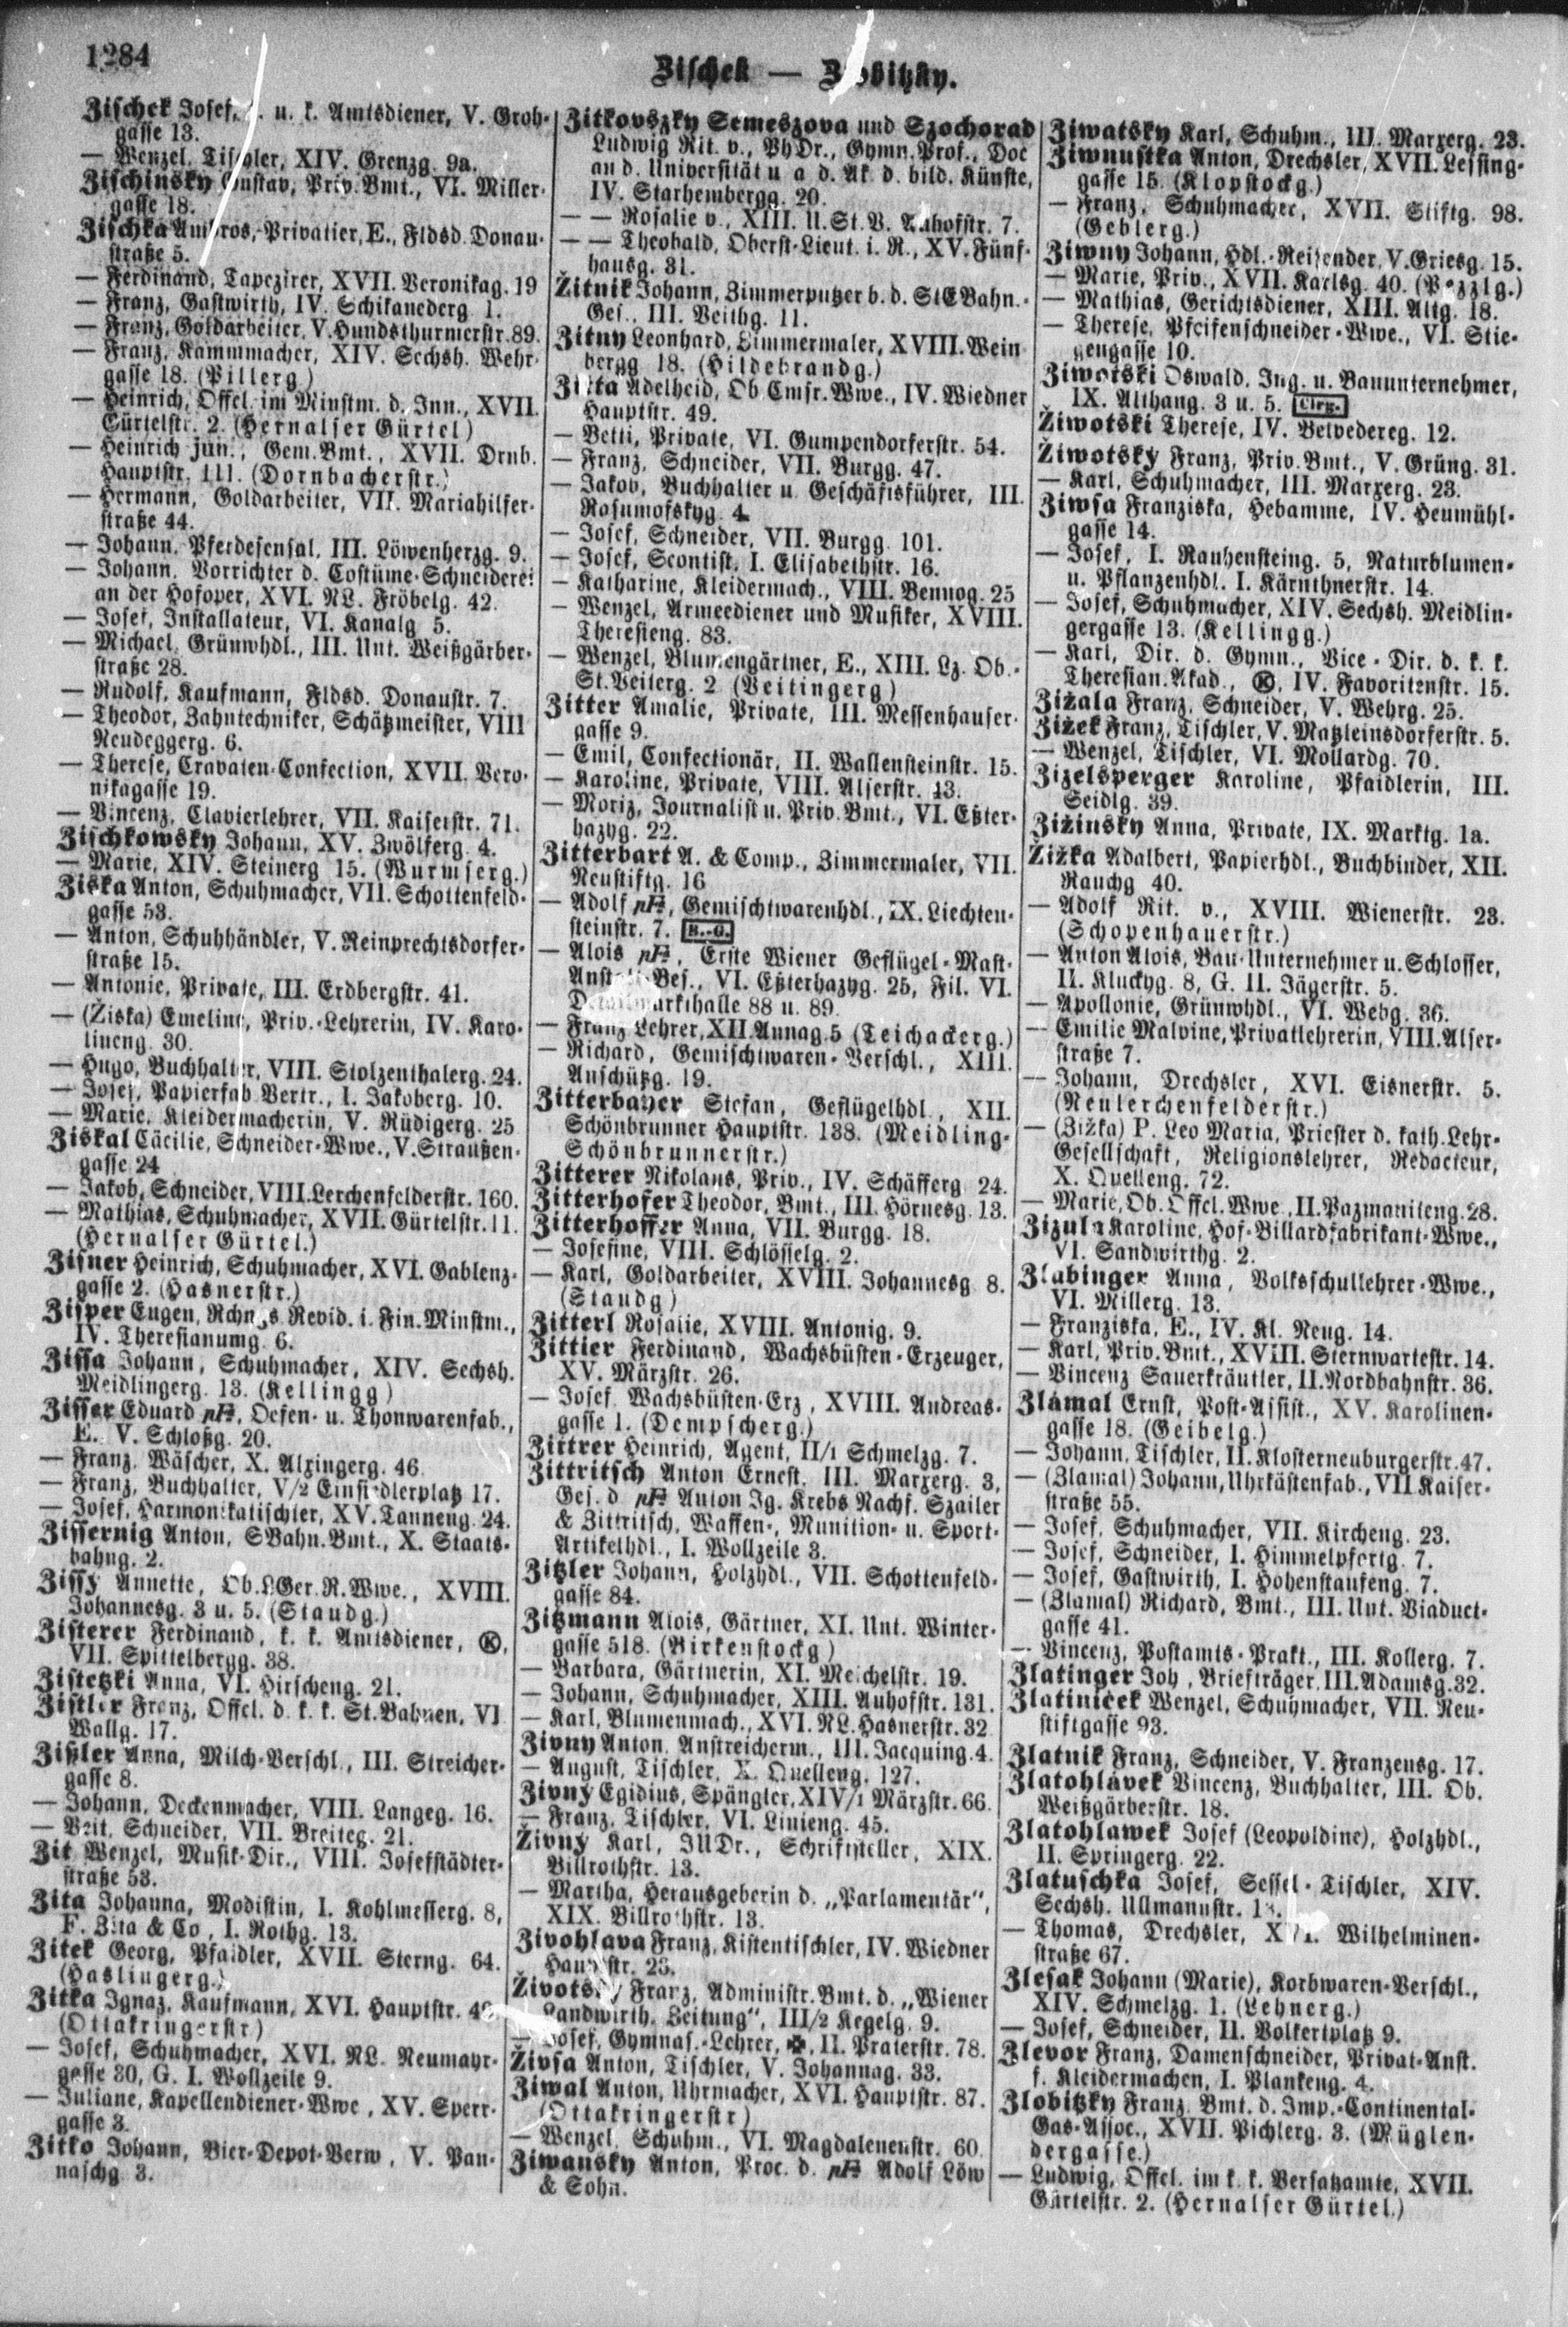 1284
Zischek — Zlobitzky.
Zischek Josef, k. u. k. Amtsdiener, V. Groh-
gasse 13.
— Wenzel, Tischler, XIV. Grenzg. 9a.
Zischinsky Gustav, Priv. Bmt., VI. Miller-
gasse 18.
Zischka Ambros, Privatier, E., Fldsd. Donau-
straße 5.
— Ferdinand, Tapezirer, XVII. Veronikag. 19
— Franz, Gastwirth, IV. Schikanederg. 1.
— Franz, Goldarbeiter, V. Hundsthurmerstr. 89.
— Franz, Kammmacher, XIV. Sechsh. Wehr-
gasse 18. (Pillerg.)
— Heinrich, Offcl. im Minstm. d. Inn., XVII.
Gürtelstr. 2. (Hernalser Gürtel)
— Heinrich jun., Gem. Bmt., XVII. Drnb.
Hauptstr. 111. (Dornbacherstr.)
— Hermann, Goldarbeiter, VII. Mariahilfer-
straße 44.
— Johann, Pferdesensal, III. Löwenherzg. 9.
— Johann, Vorrichter d. Costüme-Schneiderei
an der Hofoper, XVI. NL. Fröbelg. 42.
— Josef, Installateur, VI. Kanalg. 5.
— Michael, Grünwhdl., III. Unt. Weißgärber-
straße 28.
— Rudolf, Kaufmann, Fldsd. Donaustr. 7.
— Theodor, Zahntechniker, Schätzmeister, VIII
Neudeggerg. 6.
— Therese, Cravaten-Confection, XVII. Vero-
nikagasse 19.
— Vincenz, Clavierlehrer, VII. Kaiserstr. 71.
Zischkowsky Johann, XV. Zwölferg. 4.
— Marie, XIV. Steinerg 15. (Wurmserg.)
Ziska Anton, Schuhmacher, VII. Schottenfeld-
gasse 53.
— Anton, Schuhhändler, V. Reinprechtsdorfer-
straße 15.
— Antonie, Private, III. Erdbergstr. 41.
— (Žiska) Emeline, Priv.-Lehrerin, IV. Karo-
lineng. 30.
— Hugo, Buchhalter, VIII. Stolzenthalerg. 24.
— Josef, Papierfab Vertr., I. Jakoberg. 10.
— Marie, Kleidermacherin, V. Rüdigerg. 25
Ziskal Cäcilie, Schneider-Wwe., V. Straußen-
gasse 24
— Jakob, Schneider, VIII. Lerchenfelderstr. 160.
— Mathias, Schuhmacher, XVII. Gürtelstr. 11.
(Hernalser Gürtel.)
Zisner Heinrich, Schuhmacher, XVI. Gablenz-
gasse 2. (Hasnerstr.)
Zisper Eugen, Rchngs Revid. i. Fin. Minstm.,
IV. Theresianumg. 6.
Zissa Johann, Schuhmacher, XIV. Sechsh.
Meidlingerg. 13. (Kellingg)
Zisser Eduard pFt, Oefen- u. Thonwarenfab.,
E. V. Schloßg. 20.
— Franz, Wäscher, X. Alxingerg. 46
— Franz, Buchhalter, V/2 Einsiedlerplatz 17.
— Josef, Harmonikatischler, XV. Tanneng. 24.
Zissernig Anton, SBahn. Bmt., X. Staats-
bahng. 2.
Zissy Annette, Ob. LGer. R. Wwe., XVIII.
Johannesg. 3 u. 5. (Staudg.)
Zisterer Ferdinand, k. k. Amtsdiener, Ⓚ,
VII. Spittelbergg. 38.
Zistetzki Anna, VI. Hirscheng. 21.
Zistler Franz, Offcl. d. k. k. St. Bahnen, VI
Wallg. 17.
Zißler Anna, Milch-Verschl., III. Streicher-
gasse 8.
— Johann, Deckenmacher, VIII. Langeg. 16.
— Veit, Schneider, VII. Breiteg. 21.
Zit Wenzel, Musik-Dir., VIII. Josefstädter-
straße 53.
Zita Johanna, Modistin, I. Kohlmesserg. 8,
F. Zita & Co, I. Rothg. 13.
Zitek Georg, Pfaidler, XVII. Sterng. 64.
(Haslingerg.)
Zitka Ignaz, Kaufmann, XVI. Hauptstr.
(Ottakringerstr)
— Josef, Schuhmacher, XVI. NL. Neumayr-
gasse 30, G. I. Wollzeile 9.
— Juliane, Kapellendiener-Wwe, XV. Sperr-
gasse 3.
Zitko Johann, Bier-Depot-Verw, V. Pan-
naschg. 3.
Zitkovszky Semeszova und Szochorad
Ludwig Rit. v., PhDr., Gymn. Prof., Doc
an d. Universität u a d. Ak. d. bild. Künste,
IV. Starhembergg. 20.
— — Rosalie v., XIII. U. St. V. Auhofstr. 7.
— — Theobald, Oberst-Lieut. i. R., XV. Fünf-
hausg. 31.
Žitnik Johann, Zimmerputzer b. d. StEBahn.-
Ges., III. Veithg. 11.
Zitny Leonhard, Zimmermaler, XVIII. Wein
bergg 18. (Hildebrandg.)
Zitta Adelheid, Ob. Cmsr. Wwe., IV. Wiedner
Hauptstr. 49.
— Betti, Private, VI. Gumpendorferstr. 54.
— Franz, Schneider, VII. Burgg. 47.
— Jakob, Buchhalter u. Geschäftsführer, III.
Rasumofskyg. 4.
— Josef, Schneider, VII. Burgg. 101.
— Josef, Scontist, I. Elisabethstr. 16.
— Katharine, Kleidermach., VIII. Bennog. 25
— Wenzel, Armeediener und Musiker, XVIII.
Theresieng. 83.
— Wenzel, Blumengärtner, E., XIII. Lz. Ob.-
St. Veiterg. 2 (Veitingerg)
Zitter Amalie, Private, III. Messenhauser-
gasse 9.
— Emil, Confectionär, II. Wallensteinstr. 15.
— Karoline, Private, VIII. Alserstr. 43.
— Moriz, Journalist u. Priv. Bmt., VI. Eßter-
hazyg. 22.
Zitterbart A. & Comp., Zimmermaler, VII.
Neustiftg. 16
— Adolf pFt, Gemischtwarenhdl., IX. Liechten-
steinstr. 7. B.-G.
— Alois pFt, Erste Wiener Geflügel-Mast-
Anstalt-Bes., VI. Eßterhazyg. 25, Fil. VI.
Detailmarkthalle 88 u. 89.
— Franz Lehrer, XII. Annag. 5 (Teichackerg.)
— Richard, Gemischtwaren-Verschl., XIII.
Anschützg. 19.
Zitterbayer Stefan, Geflügelhdl., XII.
Schönbrunner Hauptstr. 138. (Meidling-
Schönbrunnerstr.)
Zitterer Nikolaus, Priv., IV. Schäfferg. 24.
Zitterhofer Theodor, Bmt., III. Hörnesg. 13.
Zitterhoffer Anna, VII. Burgg. 18.
— Josefine, VIII. Schlösselg. 2.
— Karl, Goldarbeiter, XVIII. Johannesg 8.
(Staudg)
Zitterl Rosalie, XVIII. Antonig. 9.
Zittier Ferdinand, Wachsbüsten-Erzeuger,
XV. Märzstr. 26.
— Josef Wachsbüsten-Erz, XVIII. Andreas-
gasse 1. (Dempscherg.)
Zittrer Heinrich, Agent, II/1 Schmelzg. 7.
Zittritsch Anton Ernest, III. Marxerg. 3,
Ges. d pFt Anton Ig. Krebs Nachf. Szailer
& Zittritsch, Waffen-, Munition- u. Sport-
Artikelhdl., I. Wollzeile 3.
Zitzler Johann, Holzhdl., VII. Schottenfeld-
gasse 84.
Zitzmann Alois, Gärtner, XI. Unt. Winter-
gasse 518. (Birkenstockg)
— Barbara, Gärtnerin, XI. Meichelstr. 19.
— Johann, Schuhmacher, XIII. Auhofstr. 131.
— Karl, Blumenmach., XVI. NL. Hasnerstr. 32
Zivny Anton, Anstreicherm., III. Jacquing. 4.
— August, Tischler, X. Quelleng. 127.
Zivný Egidius, Spängler, XIV/1 Märzstr. 66.
— Franz, Tischler, VI. Linieng. 45.
Živný Karl, JUDr., Schriftsteller, XIX.
Billrothstr. 13.
— Martha, Herausgeberin d. „Parlamentär“,
XIX. Billrothstr. 13.
Zivohlava Franz, Kistentischler, IV. Wiedner
Hauptstr. 23.
Životsky Franz, Administr. Bmt. d. „Wiener
Landwirth. Zeitung“, III/2 Kegelg. 9.
— Josef, Gymnas.-Lehrer, ✠, II. Praterstr. 78.
Živsa Anton, Tischler, V. Johannag. 33.
Ziwal Anton, Uhrmacher, XVI. Hauptstr. 87.
(Ottakringerstr)
— Wenzel, Schuhm., VI. Magdalenenstr. 60.
Ziwansky Anton, Proc. d. pFt Adolf Löw
& Sohn.
Ziwatsky Karl, Schuhm., III. Marxerg. 23.
Ziwnustka Anton, Drechsler, XVII. Lessing-
gasse 15. (Klopstockg.)
— Franz, Schuhmacher, XVII. Stiftg. 98.
(Geblerg.)
Ziwny Johann, Hdl.-Reisender, V. Griesg. 15.
— Marie, Priv., XVII. Karlsg. 40. (Pezzlg.)
— Mathias, Gerichtsdiener, XIII. Altg. 18.
— Therese, Pfeifenschneider-Wwe., VI. Stie-
gengasse 10.
Ziwotski Oswald, Ing. u. Bauunternehmer,
IX. Althang. 3 u. 5. Clrg.
Životski Therese, IV. Belvedereg. 12.
Životský Franz, Priv. Bmt., V. Grüng. 31.
— Karl, Schuhmacher, III. Marxerg. 23.
Ziwsa Franziska, Hebamme, IV. Heumühl-
gasse 14.
— Josef, I. Rauhensteing. 5, Naturblumen-
u. Pflanzenhdl. I. Kärnthnerstr. 14.
— Josef, Schuhmacher, XIV. Sechsh. Meidlin-
gergasse 13. (Kellingg.)
— Karl, Dir. d. Gymn., Vice-Dir. d. k. k.
Theresian. Akad., Ⓚ, IV. Favoritenstr. 15.
Zižala Franz, Schneider, V. Wehrg. 25.
Zižek Franz, Tischler, V. Matzleinsdorferstr. 5.
— Wenzel, Tischler, VI. Mollardg. 70.
Zizelsperger Karoline, Pfaidlerin, III.
Seidlg. 39.
Zižinsky Anna, Private, IX. Marktg. 1a.
Žižka Adalbert, Papierhdl., Buchbinder, XII.
Rauchg 40.
— Adolf Rit. v., XVIII. Wienerstr. 23.
(Schopenhauerstr.)
— Anton Alois, Bau-Unternehmer u. Schlosser,
II. Kluckyg. 8, G. II. Jägerstr. 5.
— Apollonie, Grünwhdl., VI. Webg. 36.
— Emilie Malvine, Privatlehrerin, VIII. Alser-
straße 7.
— Johann, Drechsler, XVI. Eisnerstr. 5.
(Neulerchenfelderstr.)
— (Zižka) P. Leo Maria, Priester d. kath. Lehr-
Gesellschaft, Religionslehrer, Redacteur,
X. Quelleng. 72.
— Marie, Ob. Offcl. Wwe, II. Pazmaniteng. 28.
Zizula Karoline, Hof-Billardfabrikant-Wwe.,
VI. Sandwirthg. 2.
Zlabinger Anna, Volksschullehrer-Wwe.,
VI. Millerg. 13.
— Franziska, E., IV. Kl. Neug. 14.
— Karl, Priv. Bmt., XVIII. Sternwartestr. 14.
— Vincenz Sauerkräutler, II. Nordbahnstr. 36.
Zlámal Ernst, Post-Assist., XV. Karolinen-
gasse 18. (Geibelg.)
— Johann, Tischler, II. Klosterneuburgerstr. 47.
— (Zlamal) Johann, Uhrkästenfab., VII Kaiser-
straße 55.
— Josef, Schuhmacher, VII. Kircheng. 23.
— Josef, Schneider, I. Himmelpfortg. 7.
— Josef, Gastwirth, I. Hohenstaufeng. 7.
— (Zlamal) Richard, Bmt., III. Unt. Viaduct-
gasse 41.
— Vincenz, Postamts-Prakt., III. Kollerg. 7.
Zlatinger Joh, Briefträger, III. Adamsg. 32.
Zlatiniček Wenzel, Schuhmacher, VII. Neu-
stiftgasse 93.
Zlatnik Franz, Schneider, V. Franzensg. 17.
Zlatohlávek Vincenz, Buchhalter, III. Ob.
Weißgärberstr. 18.
Zlatohlawek Josef (Leopoldine), Holzhdl.,
II. Springerg. 22.
Zlatuschka Josef, Sessel-Tischler, XIV.
Sechsh. Ullmannstr.
— Thomas, Drechsler, XVI. Wilhelminen-
straße 67.
Zlesak Johann (Marie), Korbwaren-Verschl.,
XIV. Schmelzg. 1. (Lehnerg.)
— Josef, Schneider, II. Volkertplatz 9.
Zlevor Franz, Damenschneider, Privat-Anst.
f. Kleidermachen, I. Plankeng. 4.
Zlobitzky Franz, Bmt. d. Imp.-Continental-
Gas-Assoc., XVII. Pichlerg. 3. (Müglen-
dergasse.)
— Ludwig, Offcl. im k. k. Versatzamte, XVII.
Gürtelstr. 2. (Hernalser Gürtel.)